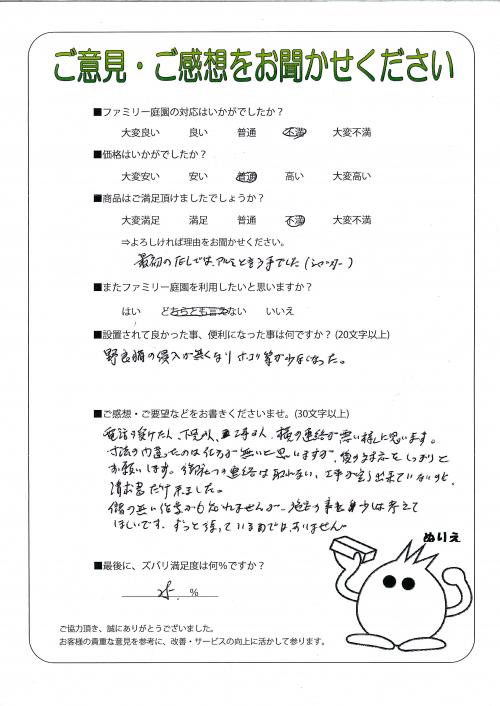 ご意見・ご感想をお聞かせください
■ファミリー庭園の対応はいかがでしたか？
大変良い 良い 普通 不満 大変不満
■価格はいかがでしたか？
大変安い 安い 普通 高い 大変高い
■商品はご満足頂けましたでしょうか？
大変満足 満足 普通 不満 大変不満
⇒よろしければ理由をお聞かせください。
最初の話しではアルミと言う事でした(シャッター)
■またファミリー庭園を利用したいと思いますか？
はい どちらとも言えない いいえ
■設置されて良かった事、便利になった事は何ですか？(20文字以上)
野良猫の侵入が無くなりホコリ等が少なくなった。
■ご感想・ご要望などをお書きくださいませ。(30文字以上)
電話を受けた人、下見の人、工事の人、横の連絡が悪い様に思います。
寸法の内違ったのは仕方が無いと思いますが、後の対応をしっかりと
お願いします。待っての連絡は取れない、工事が完了出来ていないのに、
請求書だけ来ました。
儲の無い仕事かも知れませんが、地方の事も少しは考えて
ほしいです。ずっと待っているのでは、すいません
ぬりえ
■最後に、ズバリ満足度は何％ですか？
％
ご協力頂き、誠にありがとうございました。
お客様の貴重な意見を参考に、改善・サービスの向上に活かして参ります。